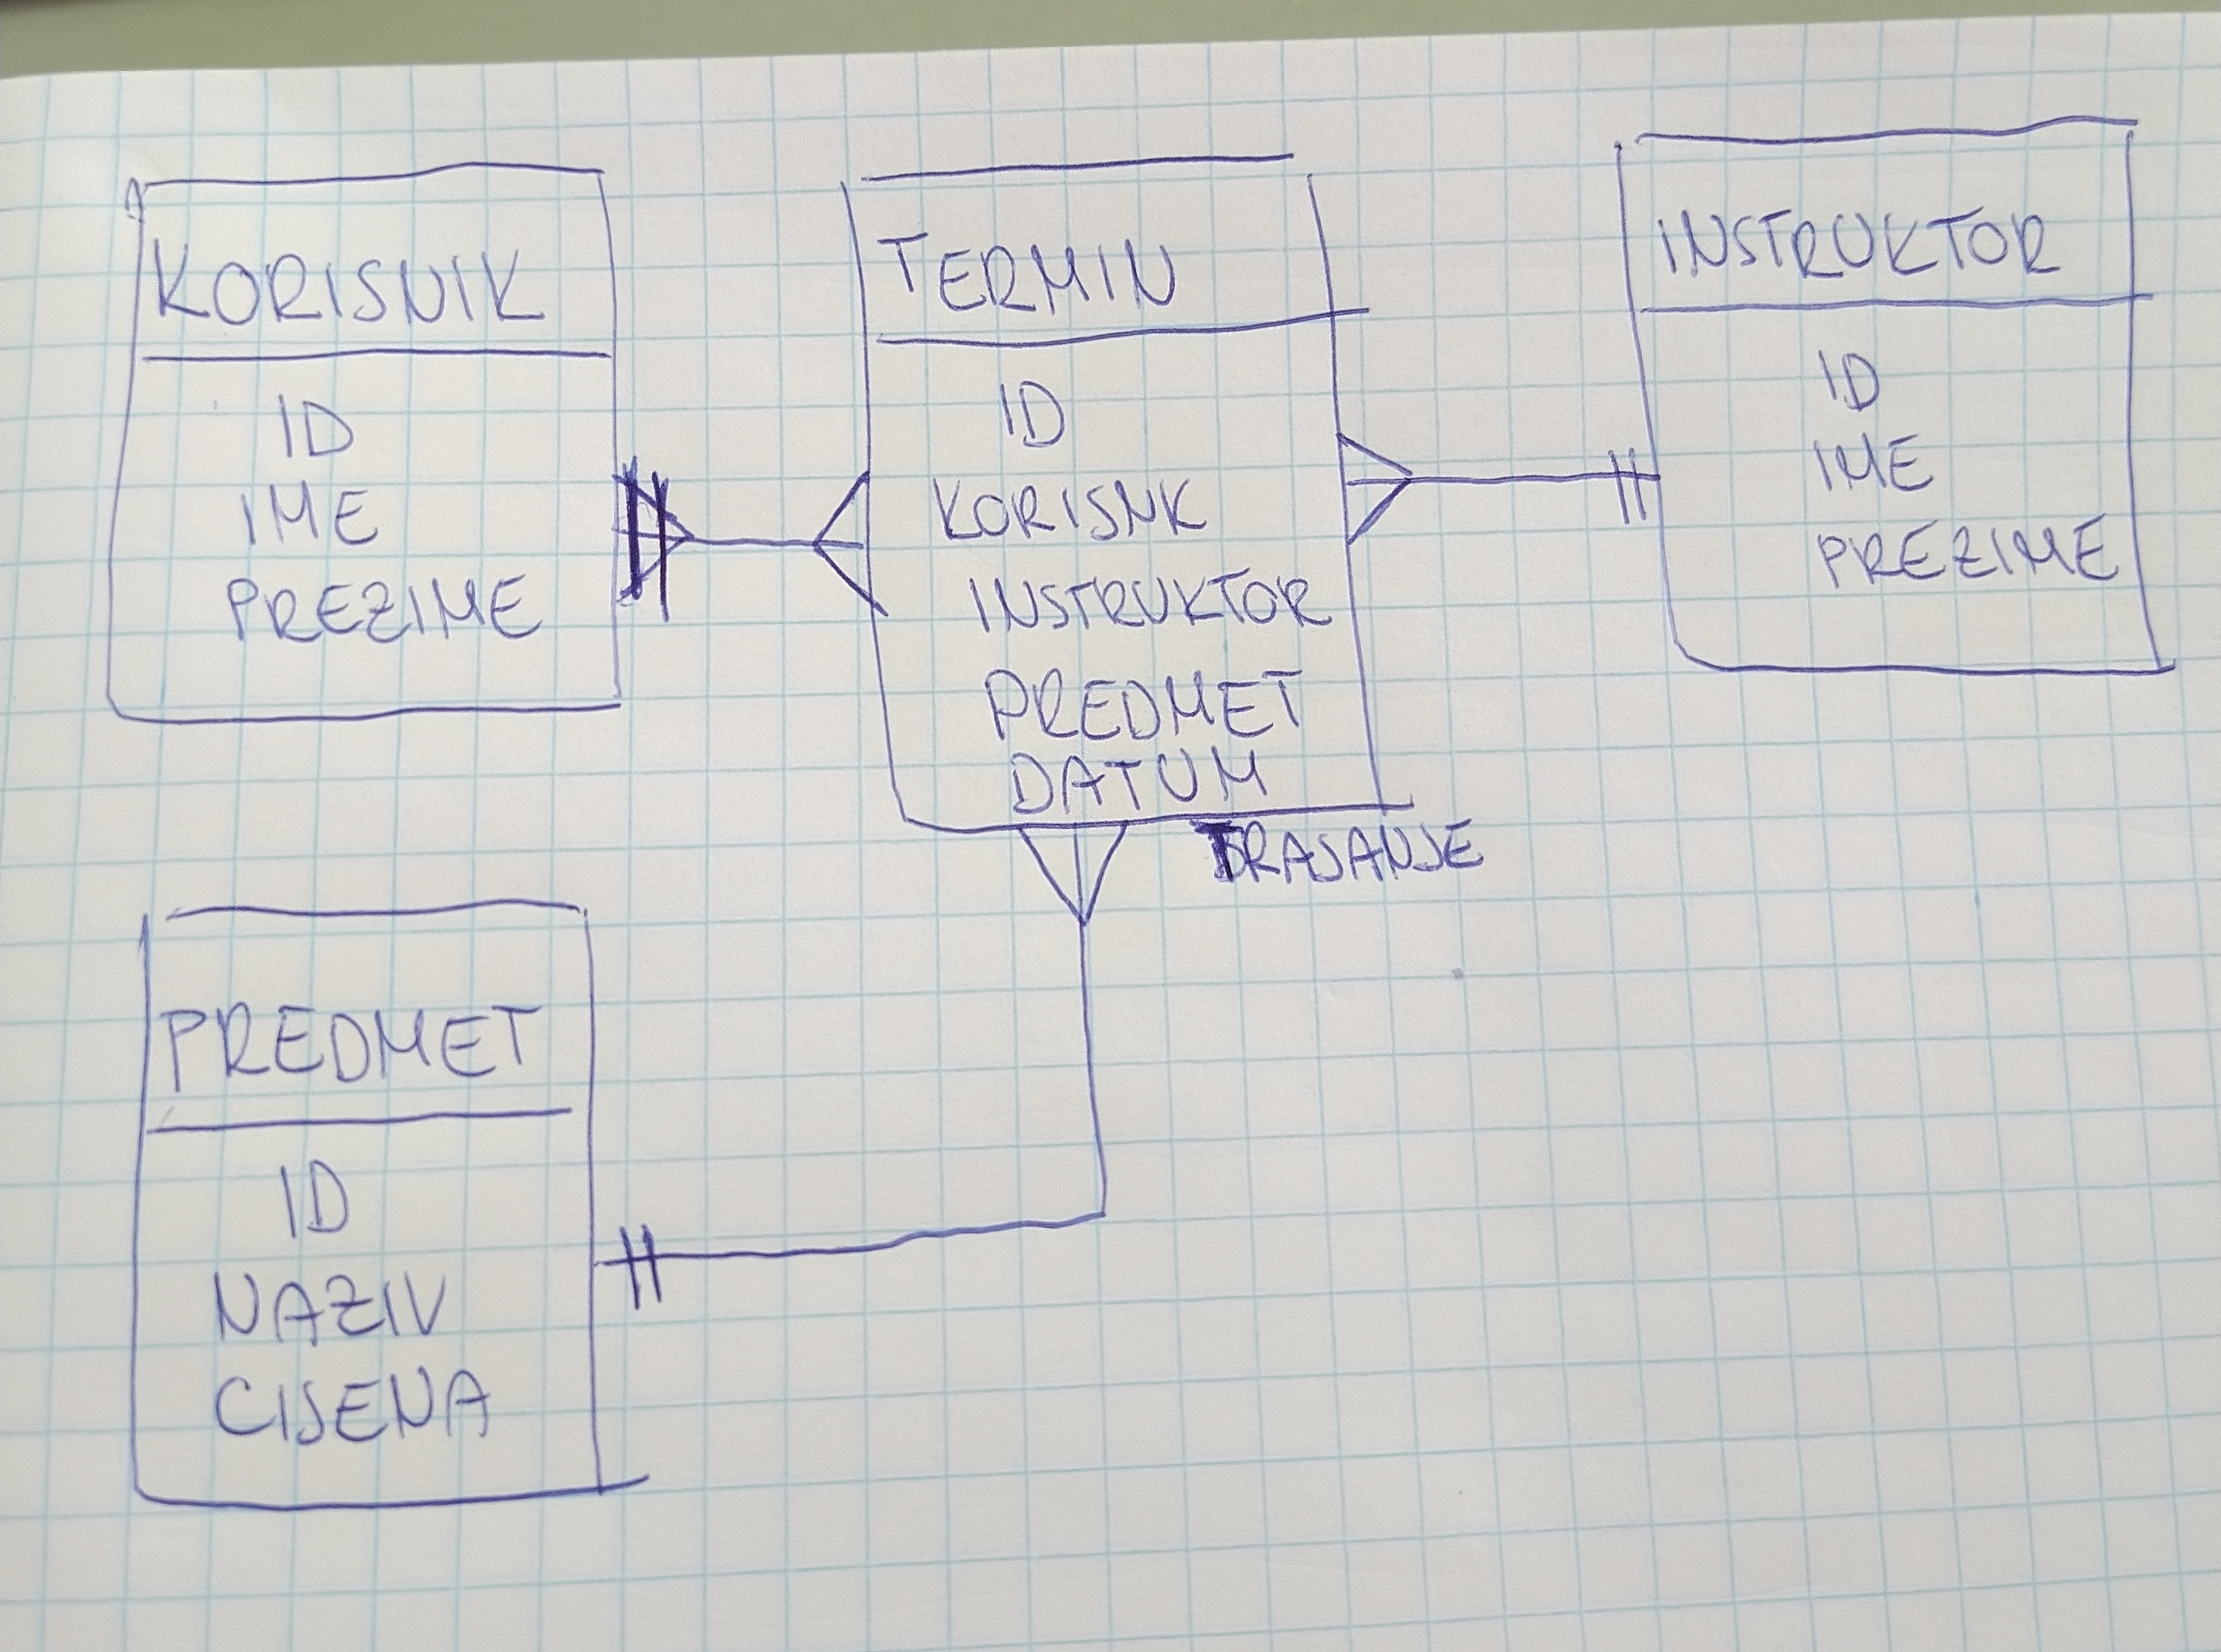 KORISNIK
ID
IME
PREZIME
TERMIN
ID
KORISNK
INSTRUKTOR
PREDMET
DATUM
TRAJANJE
INSTRUKTOR
ID
IME
PREZIME
PREDMET
ID
NAZIV
CIJENA